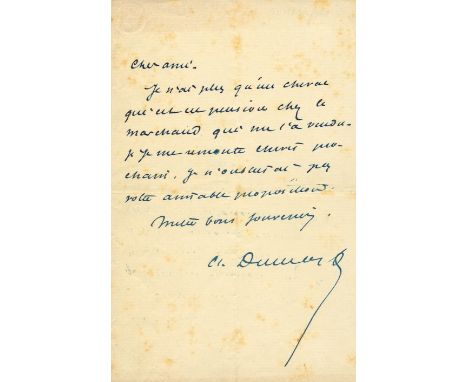 Cher ami.
Je n'ai plus qu'un cheval
qui est en pension chez le
marchand qui me l'a vendu.
Je me remonte
chain. Je n'oublierai pas
votre aimable proposition.
Mille bons souvenirs.
Ch.